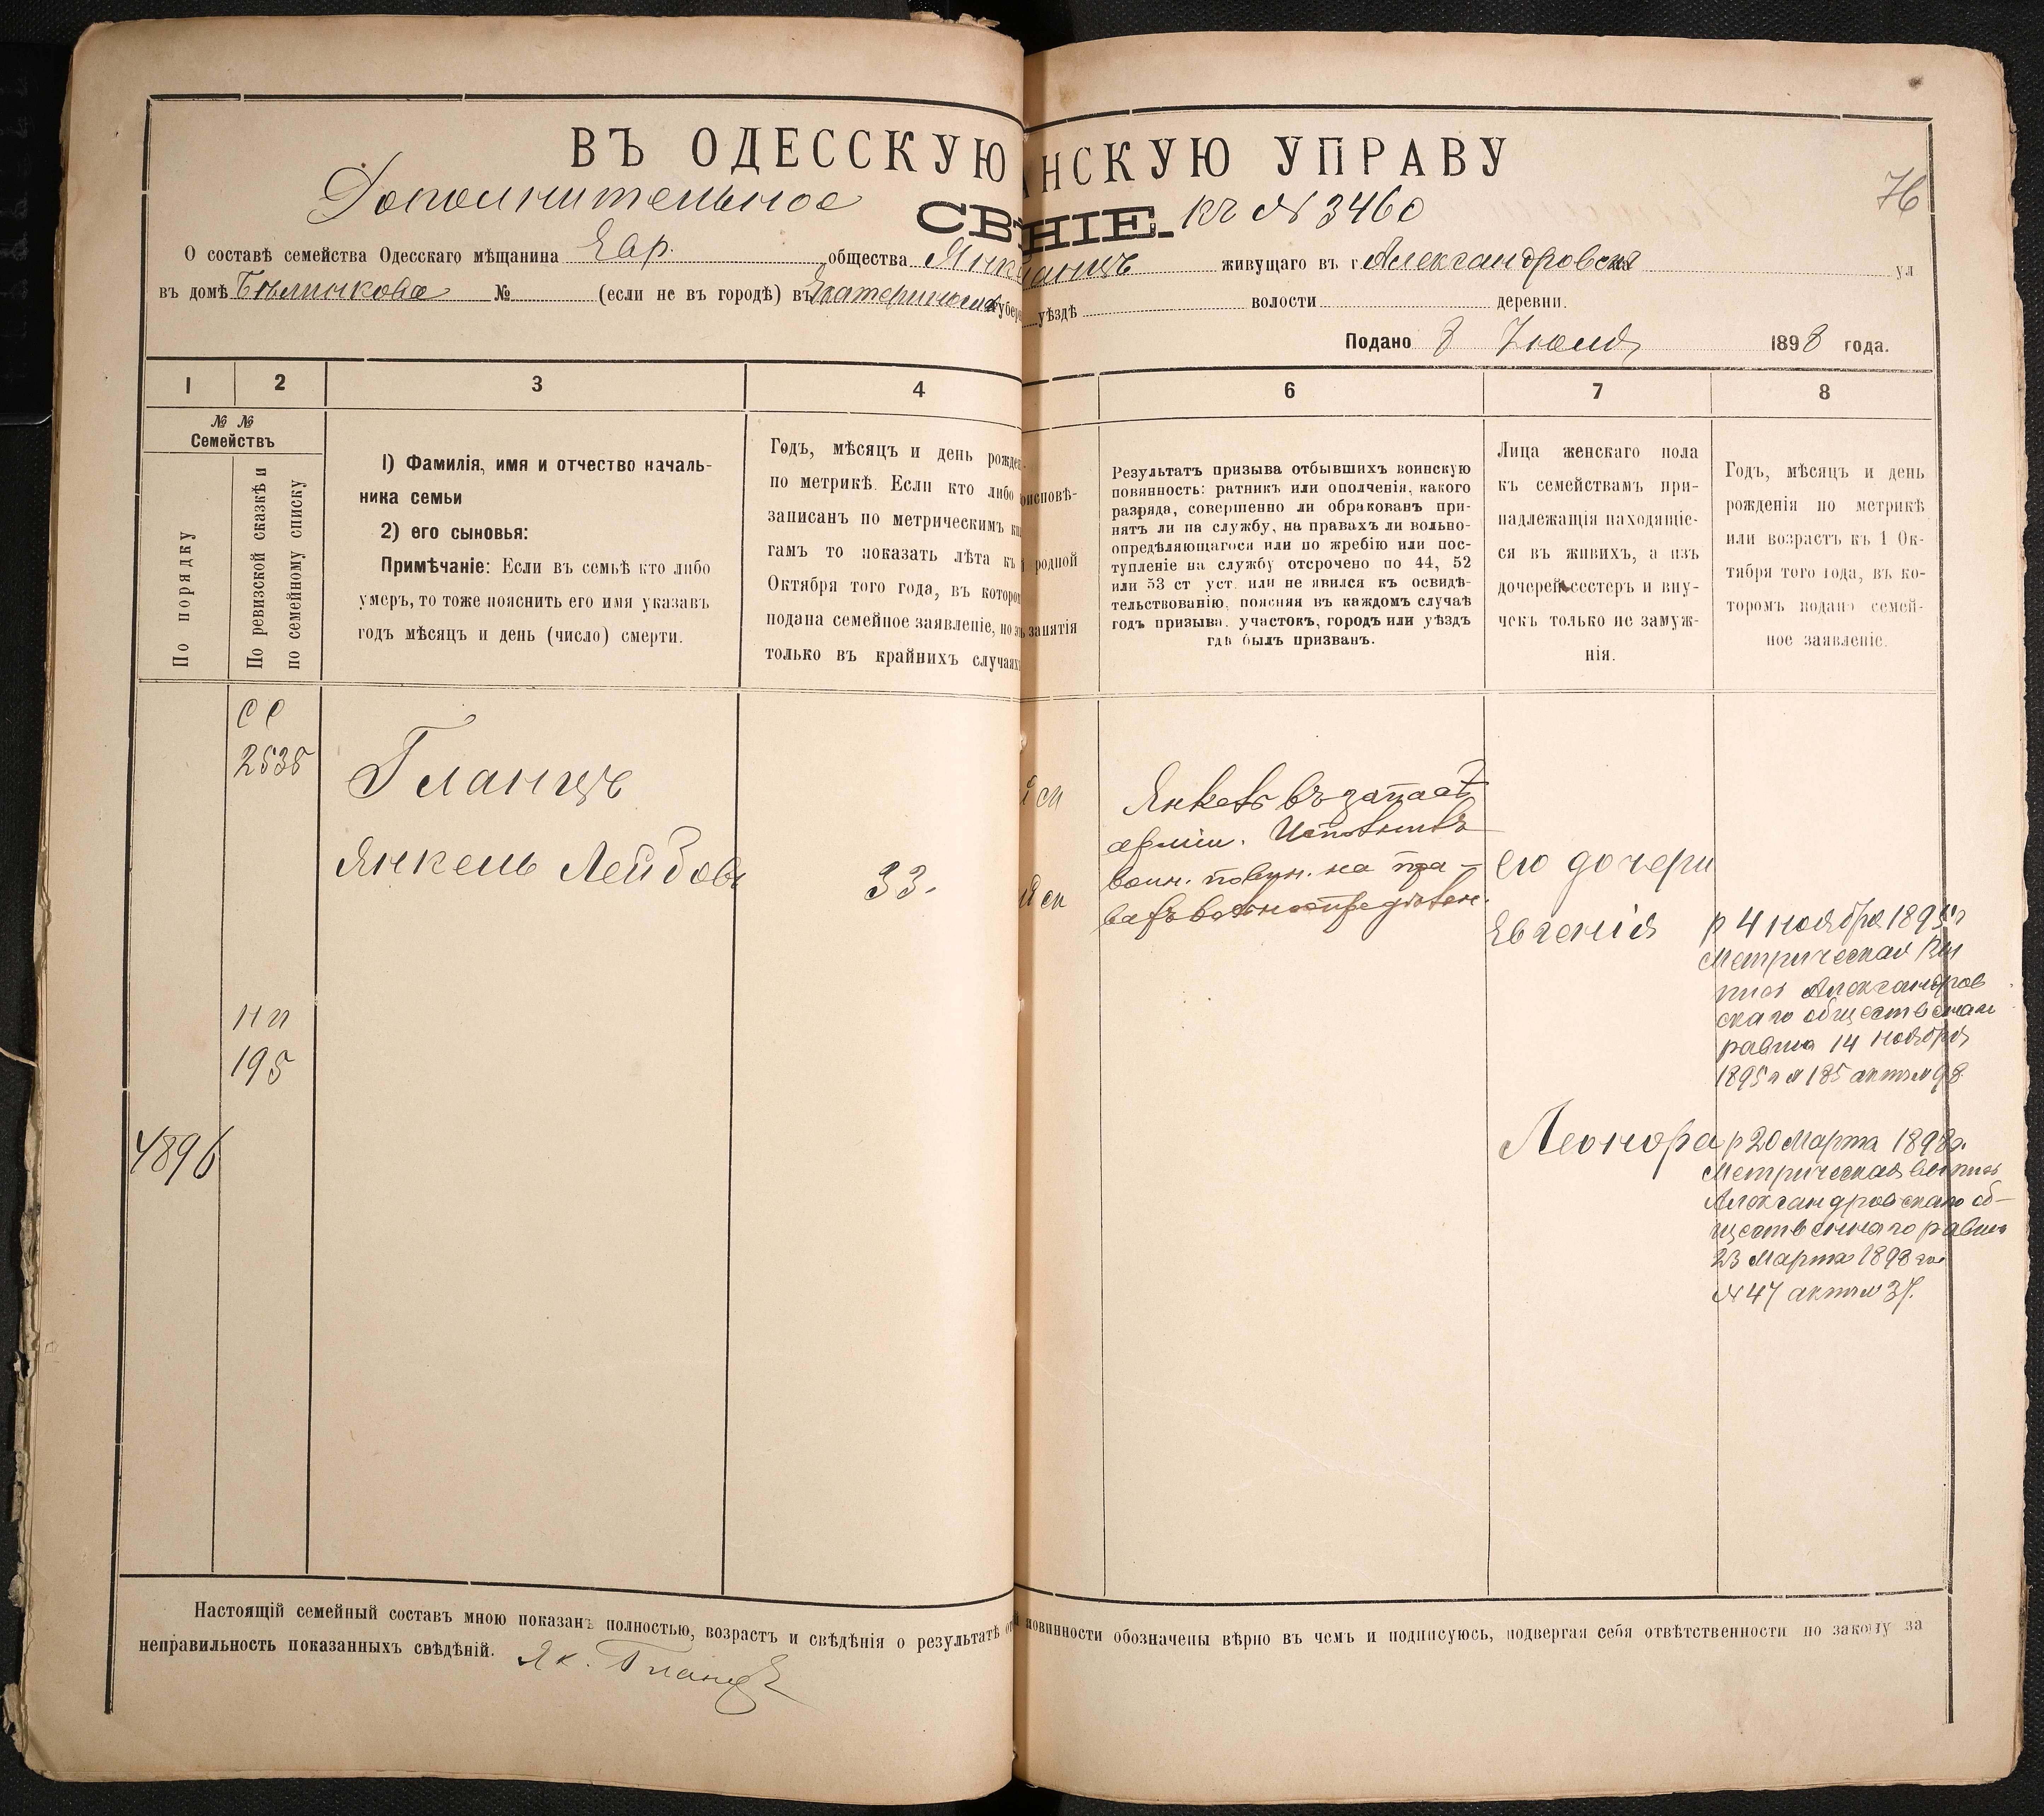 ВЪ ОДЕССКУЮ НСКУЮ УПРАВУ
Дополнительное СВѢНІЕ. къ № 3460
76
О составѣ семейства Одесскаго мѣщанина Евр. общества живущаго въ г Александровскѣ ул
въ домѣ № (если не въ городѣ) въ уѣздѣ волости деревни.
Подано 8 Іюля 1898 года.
1 2 3 4 6 7 8
№ №
Семействъ
По порядку
По ревизской сказкѣ и
по семейному списку
1) Фамилія, имя и отчество началь-
ника семьи
2) его сыновья:
Примѣчаніе: Если въ семьѣ кто либо
умеръ, то тоже пояснить его имя указавъ
годъ мѣсяцъ и день (число) смерти.
Годъ, мѣсяцъ и день рожден
по метрикѣ. Если кто либо
записанъ по метрическимъ кни
гамъ то показать лѣта къ
Октября того года, въ которо
подана семейное заявленіе, но
только въ крайнихъ случаяхъ
исповѣ-
родной
занятія
Результатъ призыва отбывшихъ воинскую
повинность: ратникъ или ополченія, какого
разряда, совершенно ли обракованъ при-
нятъ ли на службу, на правахъ ли вольно-
опредѣляющагося или по жребію или пос-
тупленіе на службу отсрочено по 44, 52
или 53 ст уст. или не явился къ освидѣ-
тельствованію, поясняя въ каждомъ случаѣ
годъ призыва. участокъ, городъ или уѣздъ
гдѣ былъ призванъ.
Лица женскаго пола
къ семействамъ при-
надлежащія находящіе-
ся въ живихъ, а изъ
дочерей сестеръ и вну-
чекъ только не замуж-
нія.
Годъ, мѣсяцъ и день
рожденія по метрикѣ
или возрастъ къ 1 Ок-
тября того года, въ ко-
торомъ подано семей-
ное заявленіе.
СС
2535
Гланцъ
Янкель Лейбовъ
33.
Янкель въ запасѣ
арміи. Исполнилъ
воин. повин. на пра-
вахъ вольноопредѣлен.
его дочери
Евгенія р 4 ноября 1895 г
Метрическая вы
пись Александров
скаго обществен
равина 14 ноября
1895 г № 185 актъ № 98
нп
195
4896
Леонора р 20 Марта 1898 г.
Метрическая выпись
Александровскаго об-
щественнаго равина
23 Марта 1898 го
№ 47 актъ № 37.
Настоящій семейный составъ мною показанъ полностью, возрастъ и свѣдѣнія о результатѣ от повинности обозначены вѣрно въ чемъ и подписуюсь, подвергая себя отвѣтственности по закону за
неправильность показанныхъ свѣдѣній. Як. Гланцъ